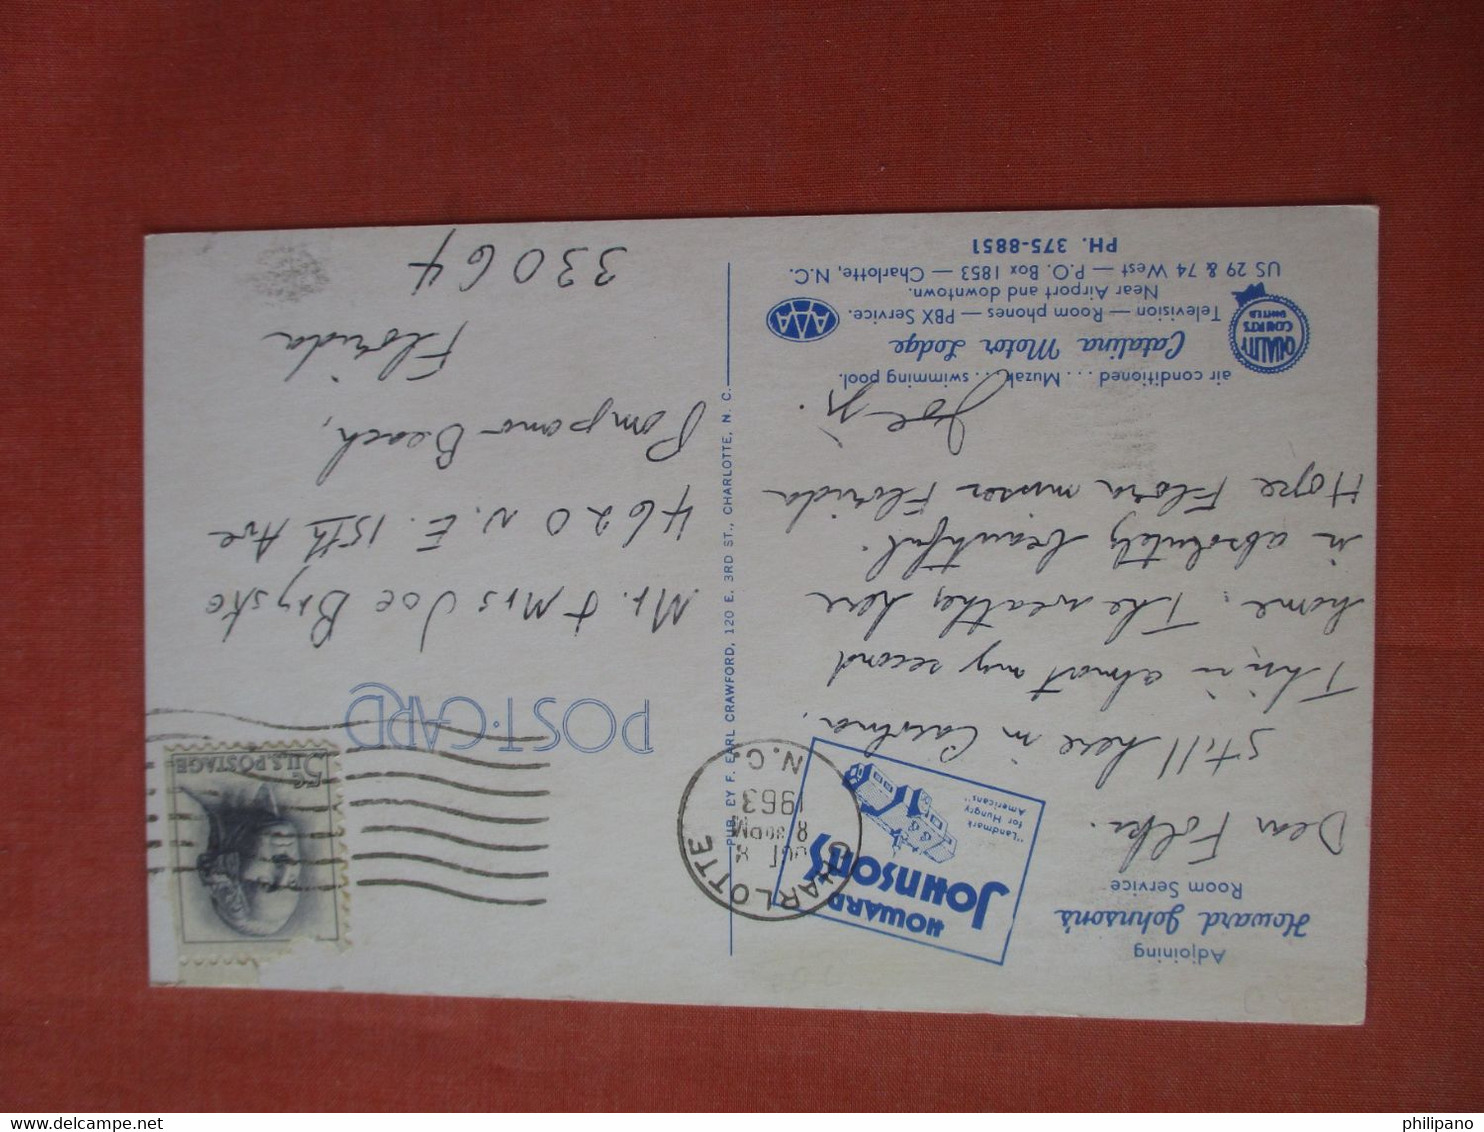 Adjoining
Howard Johnson's
Room Service
HOWARD
JOHNSON'S
"Landmark
for Hungry
Americans"
Dear Folks.
Still here in Carolina.
This is almost my second
home. The weather here
is absolutely beautiful.
Hope Flora misses Florida
Joe Jr.
air conditioned . . . . Muzak . . . . swimming pool.
Catalina Motor Lodge
Television — Room phones — PBX Service.
Near Airport and downtown.
US 29 & 74 West — P.O. Box 1853 — Charlotte, N.C.
PH. 375-8851
QUALITY
COURTS
UNITED
AAA
PUB. BY F. EARL CRAWFORD, 120 E. 3RD ST., CHARLOTTE, N. C.
CHARLOTTE
OCT 8
8 30 PM
1963
N.C.
5¢ U.S. POSTAGE
POST-CARD
Mr. & Mrs Joe Brysko
4620 N.E. 15th Ave
Pompano Beach,
Florida
33064
philipano